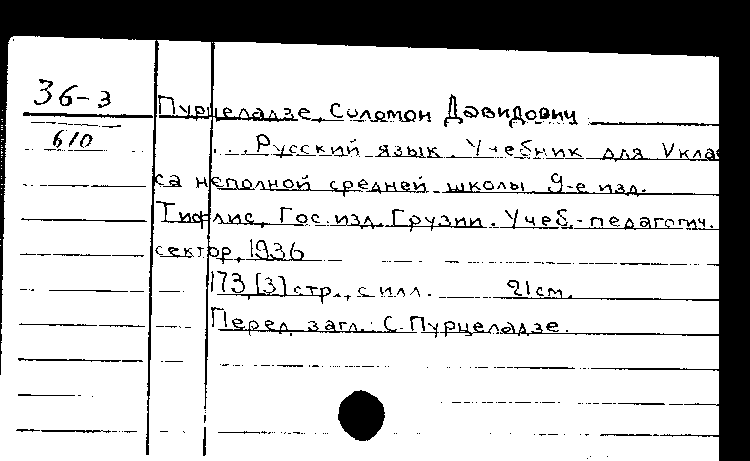 36-3
610
Пурцеладзе, Соломон Давидович
...Русский язык. Учебник для V клас
са неполной средней школы 9-е изд.
Тифлис, Гос. изд. Грузии. Учеб.-педагогич.
сектор, 1936
173,[3] стр., с илл. 21 см.
Перед загл.: С. Пурцеладзе.